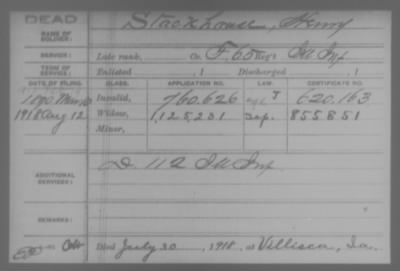 DEAD
NAME OF SOLDIER: Stackhouse, Henry
SERVICE: Late rank, Co. F, 65 Reg't Ill Inf
TERM OF SERVICE: Enlisted , 1 Discharged , 1
DATE OF FILING. CLASS. APPLICATION NO. LAW. CERTIFICATE NO.
1890 Invalid, 760.626 J 620.163
1918 Aug 12 Widow, 1,125,231 Sep. 855851
Minor,
ADDITIONAL SERVICES: D. 112 Ill Inf.
REMARKS:
Died July 30, 1918, at Villisca, Ia.